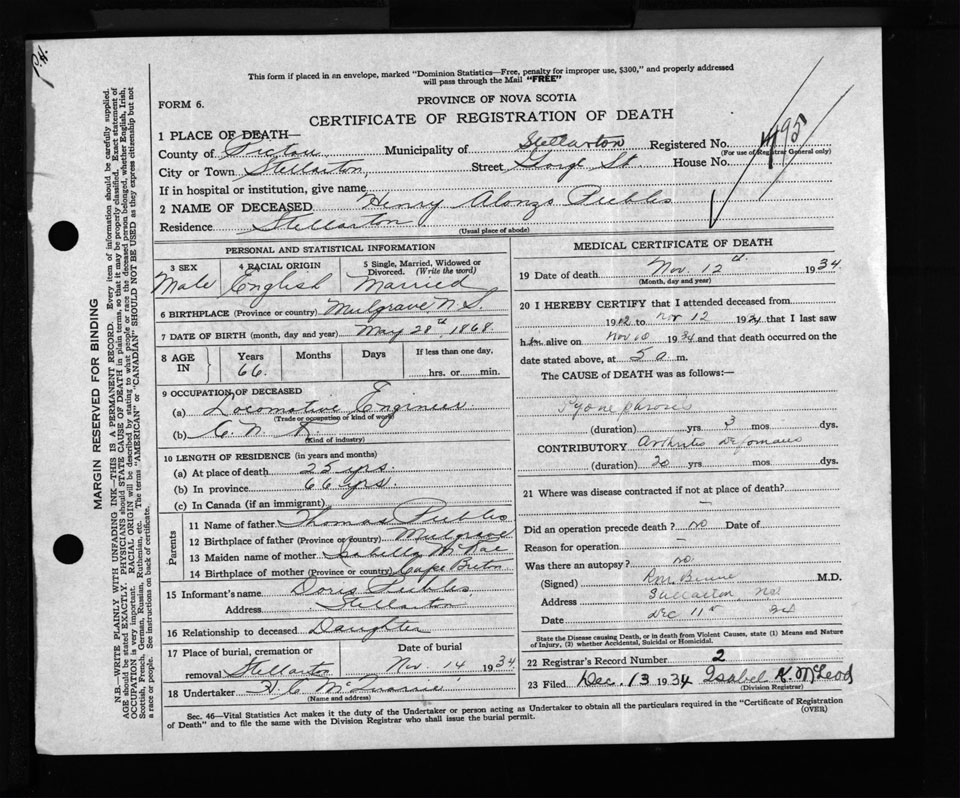 P.H.
This form if placed in an envelope, marked "Dominion Statistics—Free, penalty for improper use, $300," and properly addressed
will pass through the Mail "FREE"
FORM 6.
PROVINCE OF NOVA SCOTIA
CERTIFICATE OF REGISTRATION OF DEATH
1 PLACE OF DEATH—
County of Pictou Municipality of Stellarton Registered No.
(For use of Registrar General only)
City or Town Stellarton, Street St House No.
If in hospital or institution, give name
2 NAME OF DECEASED Henry Alonzo Peebles
Residence Stellarton
(Usual place of abode)
PERSONAL AND STATISTICAL INFORMATION
3 SEX 4 RACIAL ORIGIN 5 Single, Married, Widowed or
Divorced. (Write the word)
Male English Married
6 BIRTHPLACE (Province or country) Mulgrave N.S.
7 DATE OF BIRTH (month, day and year) May 28th 1868
8 AGE IN Years Months Days If less than one day,
66. hrs. or min.
9 OCCUPATION OF DECEASED
(a) Locomotive Engineer
(Trade or occupation or kind of work)
(b) C. N. R.
(Kind of industry)
10 LENGTH OF RESIDENCE (in years and months)
(a) At place of death 25 yrs.
(b) In province 66 yrs.
(c) In Canada (if an immigrant)
Parents
11 Name of father Thomas Peebles
12 Birthplace of father (Province or country) Mulgrave
13 Maiden name of mother Isabella McRae
14 Birthplace of mother (Province or country) Cape Breton
15 Informant's name Doris Peebles
Address Stellarton
16 Relationship to deceased Daughter
17 Place of burial, cremation or Date of burial
removal Stellarton Nov. 14 1934
18 Undertaker
(Name and address)
MEDICAL CERTIFICATE OF DEATH
19 Date of death Nov. 12th 1934
(Month, day and year)
20 I HEREBY CERTIFY that I attended deceased from
19 to Nov 12 1934 that I last saw
him alive on Nov 10 1934 and that death occurred on the
date stated above, at 5 a m.
The CAUSE of DEATH was as follows:—
(duration) yrs 3 mos. dys.
CONTRIBUTORY Arthritis Deformans
(duration) 20 yrs mos. dys.
21 Where was disease contracted if not at place of death?
—
Did an operation precede death? no Date of
Reason for operation —
Was there an autopsy? no
(Signed) M.D.
Address Stellarton, N.S.
Date Dec 11th 34
State the Disease causing Death, or in death from Violent Causes, state (1) Means and Nature
of Injury, (2) whether Accidental, Suicidal or Homicidal.
22 Registrar's Record Number 2
23 Filed Dec. 13 1934 Isabel K. McLeod
(Division Registrar)
Sec. 46—Vital Statistics Act makes it the duty of the Undertaker or person acting as Undertaker to obtain all the particulars required in the "Certificate of Registration
of Death" and to file the same with the Division Registrar who shall issue the burial permit. (OVER)
MARGIN RESERVED FOR BINDING
N.B.—WRITE PLAINLY WITH UNFADING INK—THIS IS A PERMANENT RECORD. Every item of information should be carefully supplied.
AGE should be stated EXACTLY. PHYSICIANS should STATE CAUSE OF DEATH in plain terms, so that it may be properly classified. Exact statement of
OCCUPATION is very important. RACIAL ORIGIN will be described by stating to what people or race the deceased person belonged, whether English, Irish,
Scottish, French, German, Russian, Ruthenian, etc. The terms "AMERICAN" or "CANADIAN" SHOULD NOT BE USED as they express citizenship but not
a race or people. See instructions on back of certificate.